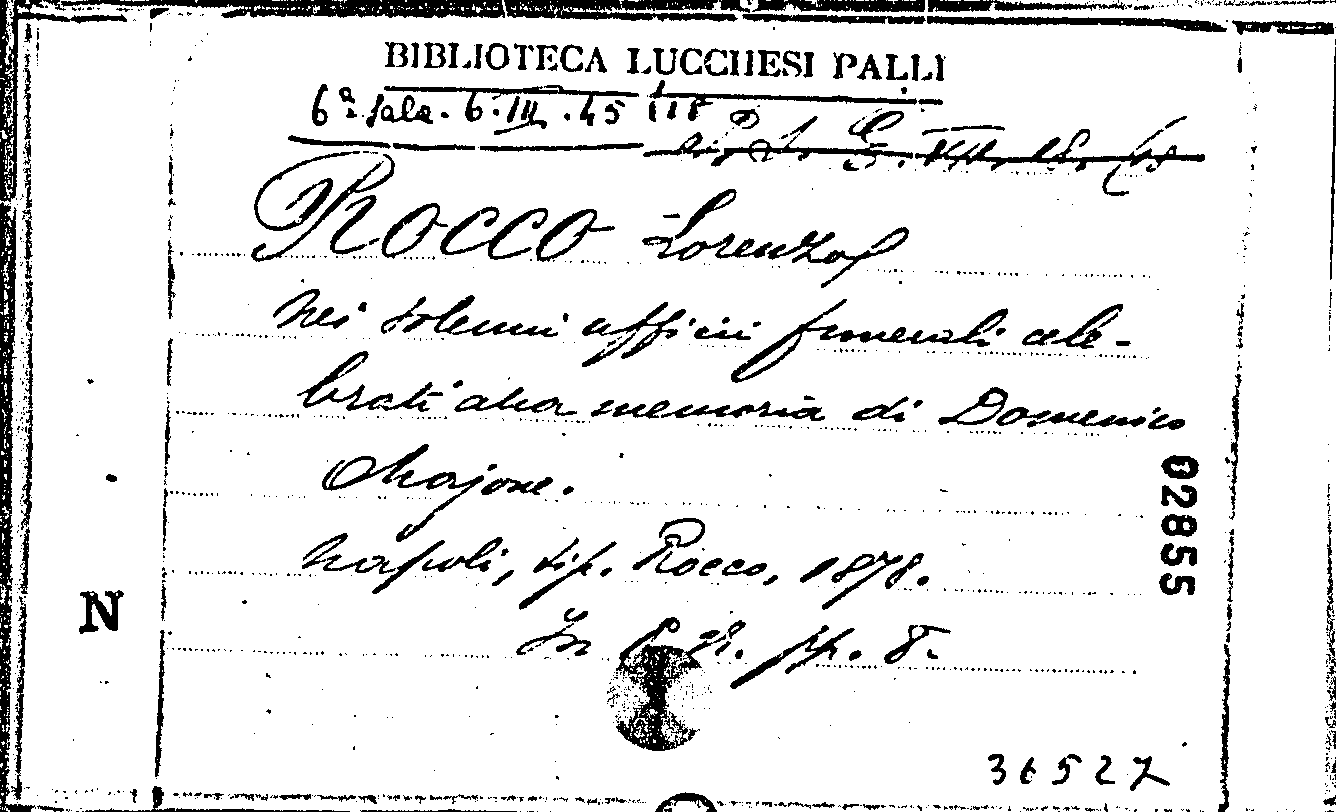 BIBLIOTECA LUCCHESI PALLI
6ª Sala. 6. III. 45
ROCCO Lorenzo
Nei solenni ufficii funerali cele-
brati alla memoria di Domenico
Majone.
Napoli, tip. Rocco, 1878.
In 8º gr. pp. 8.
02855
N
36527